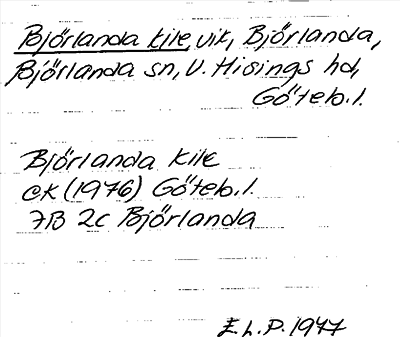 Björlanda kile, vik, Björlanda,
Björlanda sn, V. Hisings hd,
Göteb. l.
Björlanda kile
ek (1976) Göteb. l.
7B 2c Björlanda
E. L. P. 1977